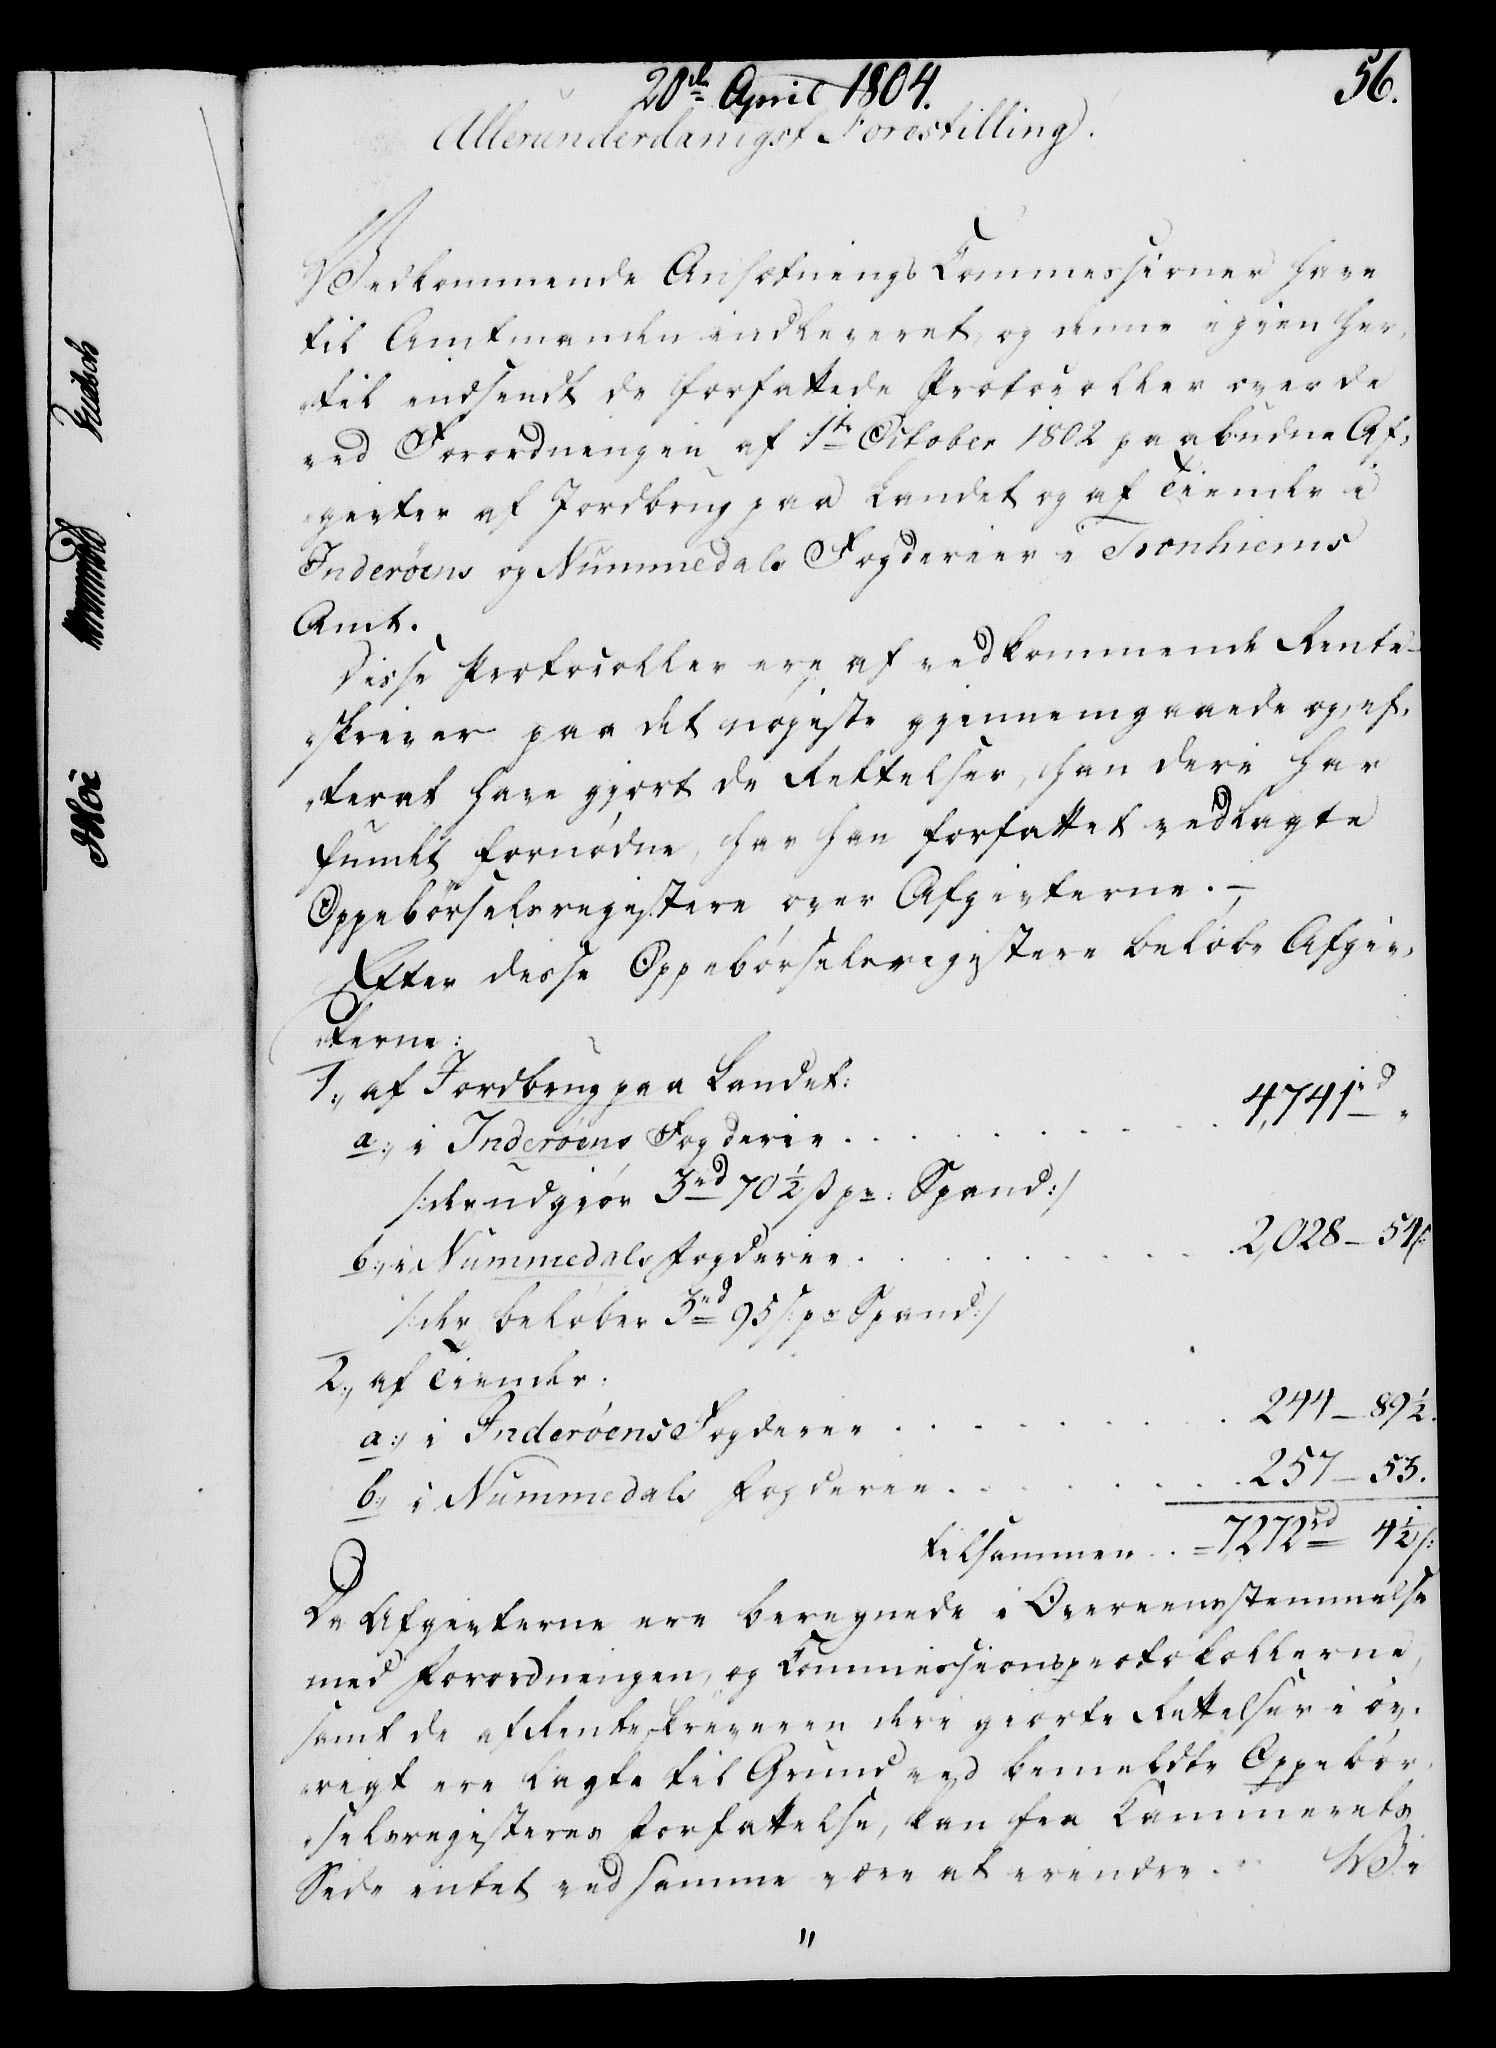 20de April 1804.
56.
Allerunderdanigst Forestilling.
Vedkommende Ansætnings Commissioner have
til Amtmanden indleveret, og denne igien her-
til indsendt de forfattede Protocoller over de
ved Forordningen af 1te October 1802 paabudne Af-
givter af Jordbrug paa Landet og af Tiender i
Inderøens og Nummedals Fogderier i Tronhiems
Amt.
Disse Protocoller ere af vedkommende Rente-
skriver paa det nøjeste gjennemgaaede og, ef-
terat have gjort de Rettelser, han deri har
fundet fornødne, har han forfattet vedlagte
Oppebørselsregistere over Afgivterne. –
Efter disse Oppebørselsregistere beløbe Afgiv-
terne:
1., af Jordbrug paa Landet:
a., i Inderøens Fogderie . . . . . . . . . 4,741rd "
/: der udgiør 3rd 70½ ß pr: Spand :/
b., i Nummedals Fogderie . . . . . . . . . 2,028 – 54 ß:
/: der beløber 3rd 95 ß: pr Spand :/
2., af Tiender:
a., i Inderøens Fogderie . . . . . . . . . 244 – 89½.
b., i Nummedals Fogderie . . . . . . . . . 257 – 53.
tilsammen . . = 7,272rd 4½ ß:
Da Afgivterne ere beregnede i Overeensstemmelse
med Forordningen, og Commissionsprotokollerne,
samt de af Renteskriveren deri giorte Rettelser i øv-
rigt ere lagte til Grund ved bemeldte Oppebør-
selsregisteres Forfattelse, kan fra Kammerets
Side intet ved samme være at erindre. Vi
"